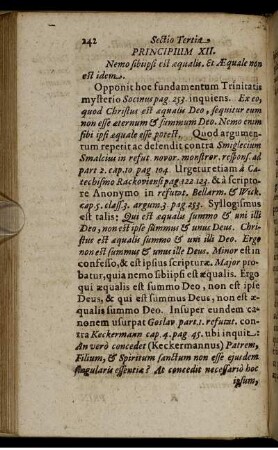 242 Sectio Tertia
PRINCIPIUM XII.
Nemo sibiipsi est æqualis. Et Æquale non
est idem.
Opponit hoc fundamentum Trinitatis
mysterio Socinus pag. 253. inquiens. Ex eo,
quod Christus est æqualis Deo, sequitur eum
non esse æternum & summum Deo. Nemo enim
sibi ipsi æquale esse potest. Quod argumen-
tum reperit ac defendit contra Smiglecium
Smalcius in refut. novor. monstror. respons. ad
part 2. cap. 10 pag 104. Urgetur etiam à Ca-
techismo Racoviensi pag 122 123. & à scripto-
re Anonymo in refut. Bellarm. & Wiek.
cap. 5. class 3. argum. 3 pag 253. Syllogismus
est talis: Qui est æqualis summo & uni illi
Deo, non est ipse summus & unus Deus. Chri-
stus est æqualis summo & uni illi Deo. Ergo
non est summus & unus ille Deus. Minor est in
confesso, & est ipsius scripturæ. Major pro-
batur, quia nemo sibiipsi est æqualis. Ergo
qui æqualis est summo Deo, non est ipse
Deus, & qui est summus Deus, non est æ-
qualis summo Deo. Insuper eundem ca-
nonem usurpat Goslav part. 1. refutat. con-
tra Keckermann cap. 4. pag. 45. ubi inquit:
An verò concedet (Keckermannus) Patrem,
Filium, & Spiritum sanctum non esse ejusdem
singularis essentiæ? At concedit necessariò hoc
ipsum,